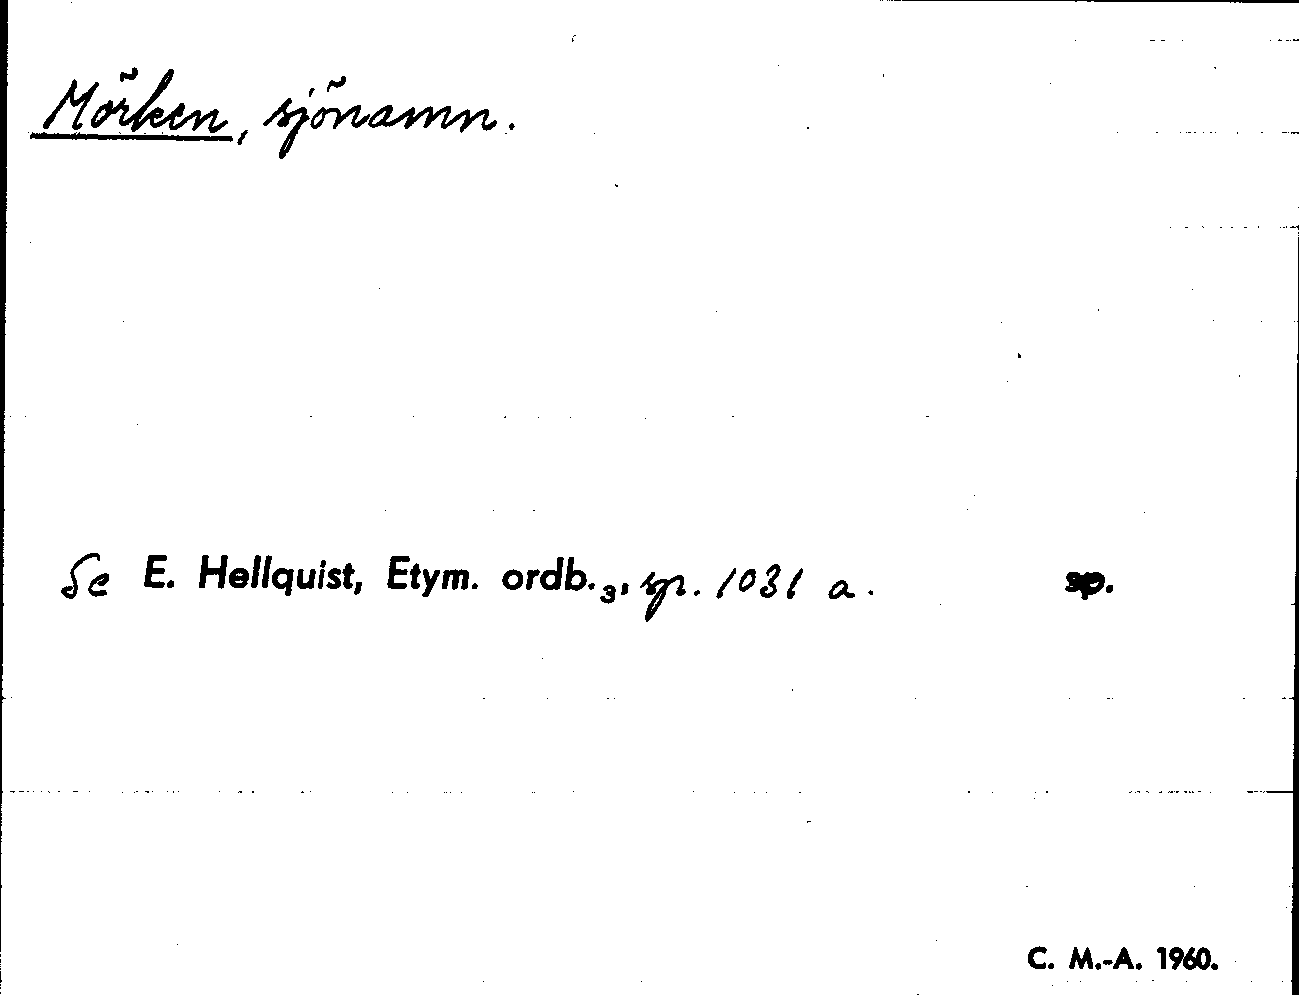 Mörken, sjönamn.
Se E. Hellquist, Etym. ordb.₃, sp. 1031 a. sp.
C. M.-A. 1960.